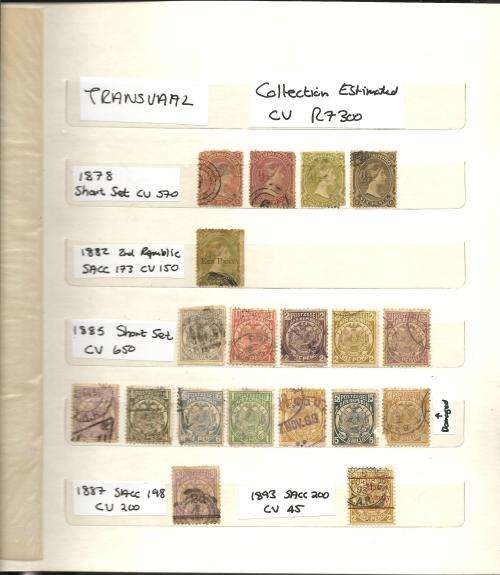 TRANSVAAL
Collection Estimated
CV R7300
1878
Short Set CV 570
1882 2nd Republic
SACC 173 CV 150
EEN PENNY
1885 Short Set
CV 650
NOV.99
↑
Damaged
1887 SACC 198
CV 200
1893 SACC 200
CV 45